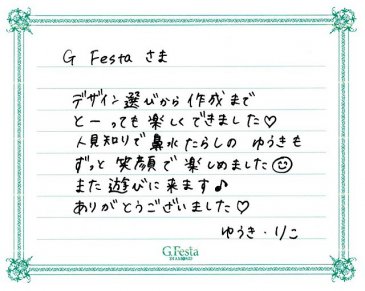 G Festa さま
デザイン選びから作成まで
とーっても楽しくできました♡
人見知りで鼻水たらしの ゆうきも
ずっと笑顔で楽しめました☺
また遊びに来ます♪
ありがとうございました♡
ゆうき・りこ
G.Festa
DIAMOND